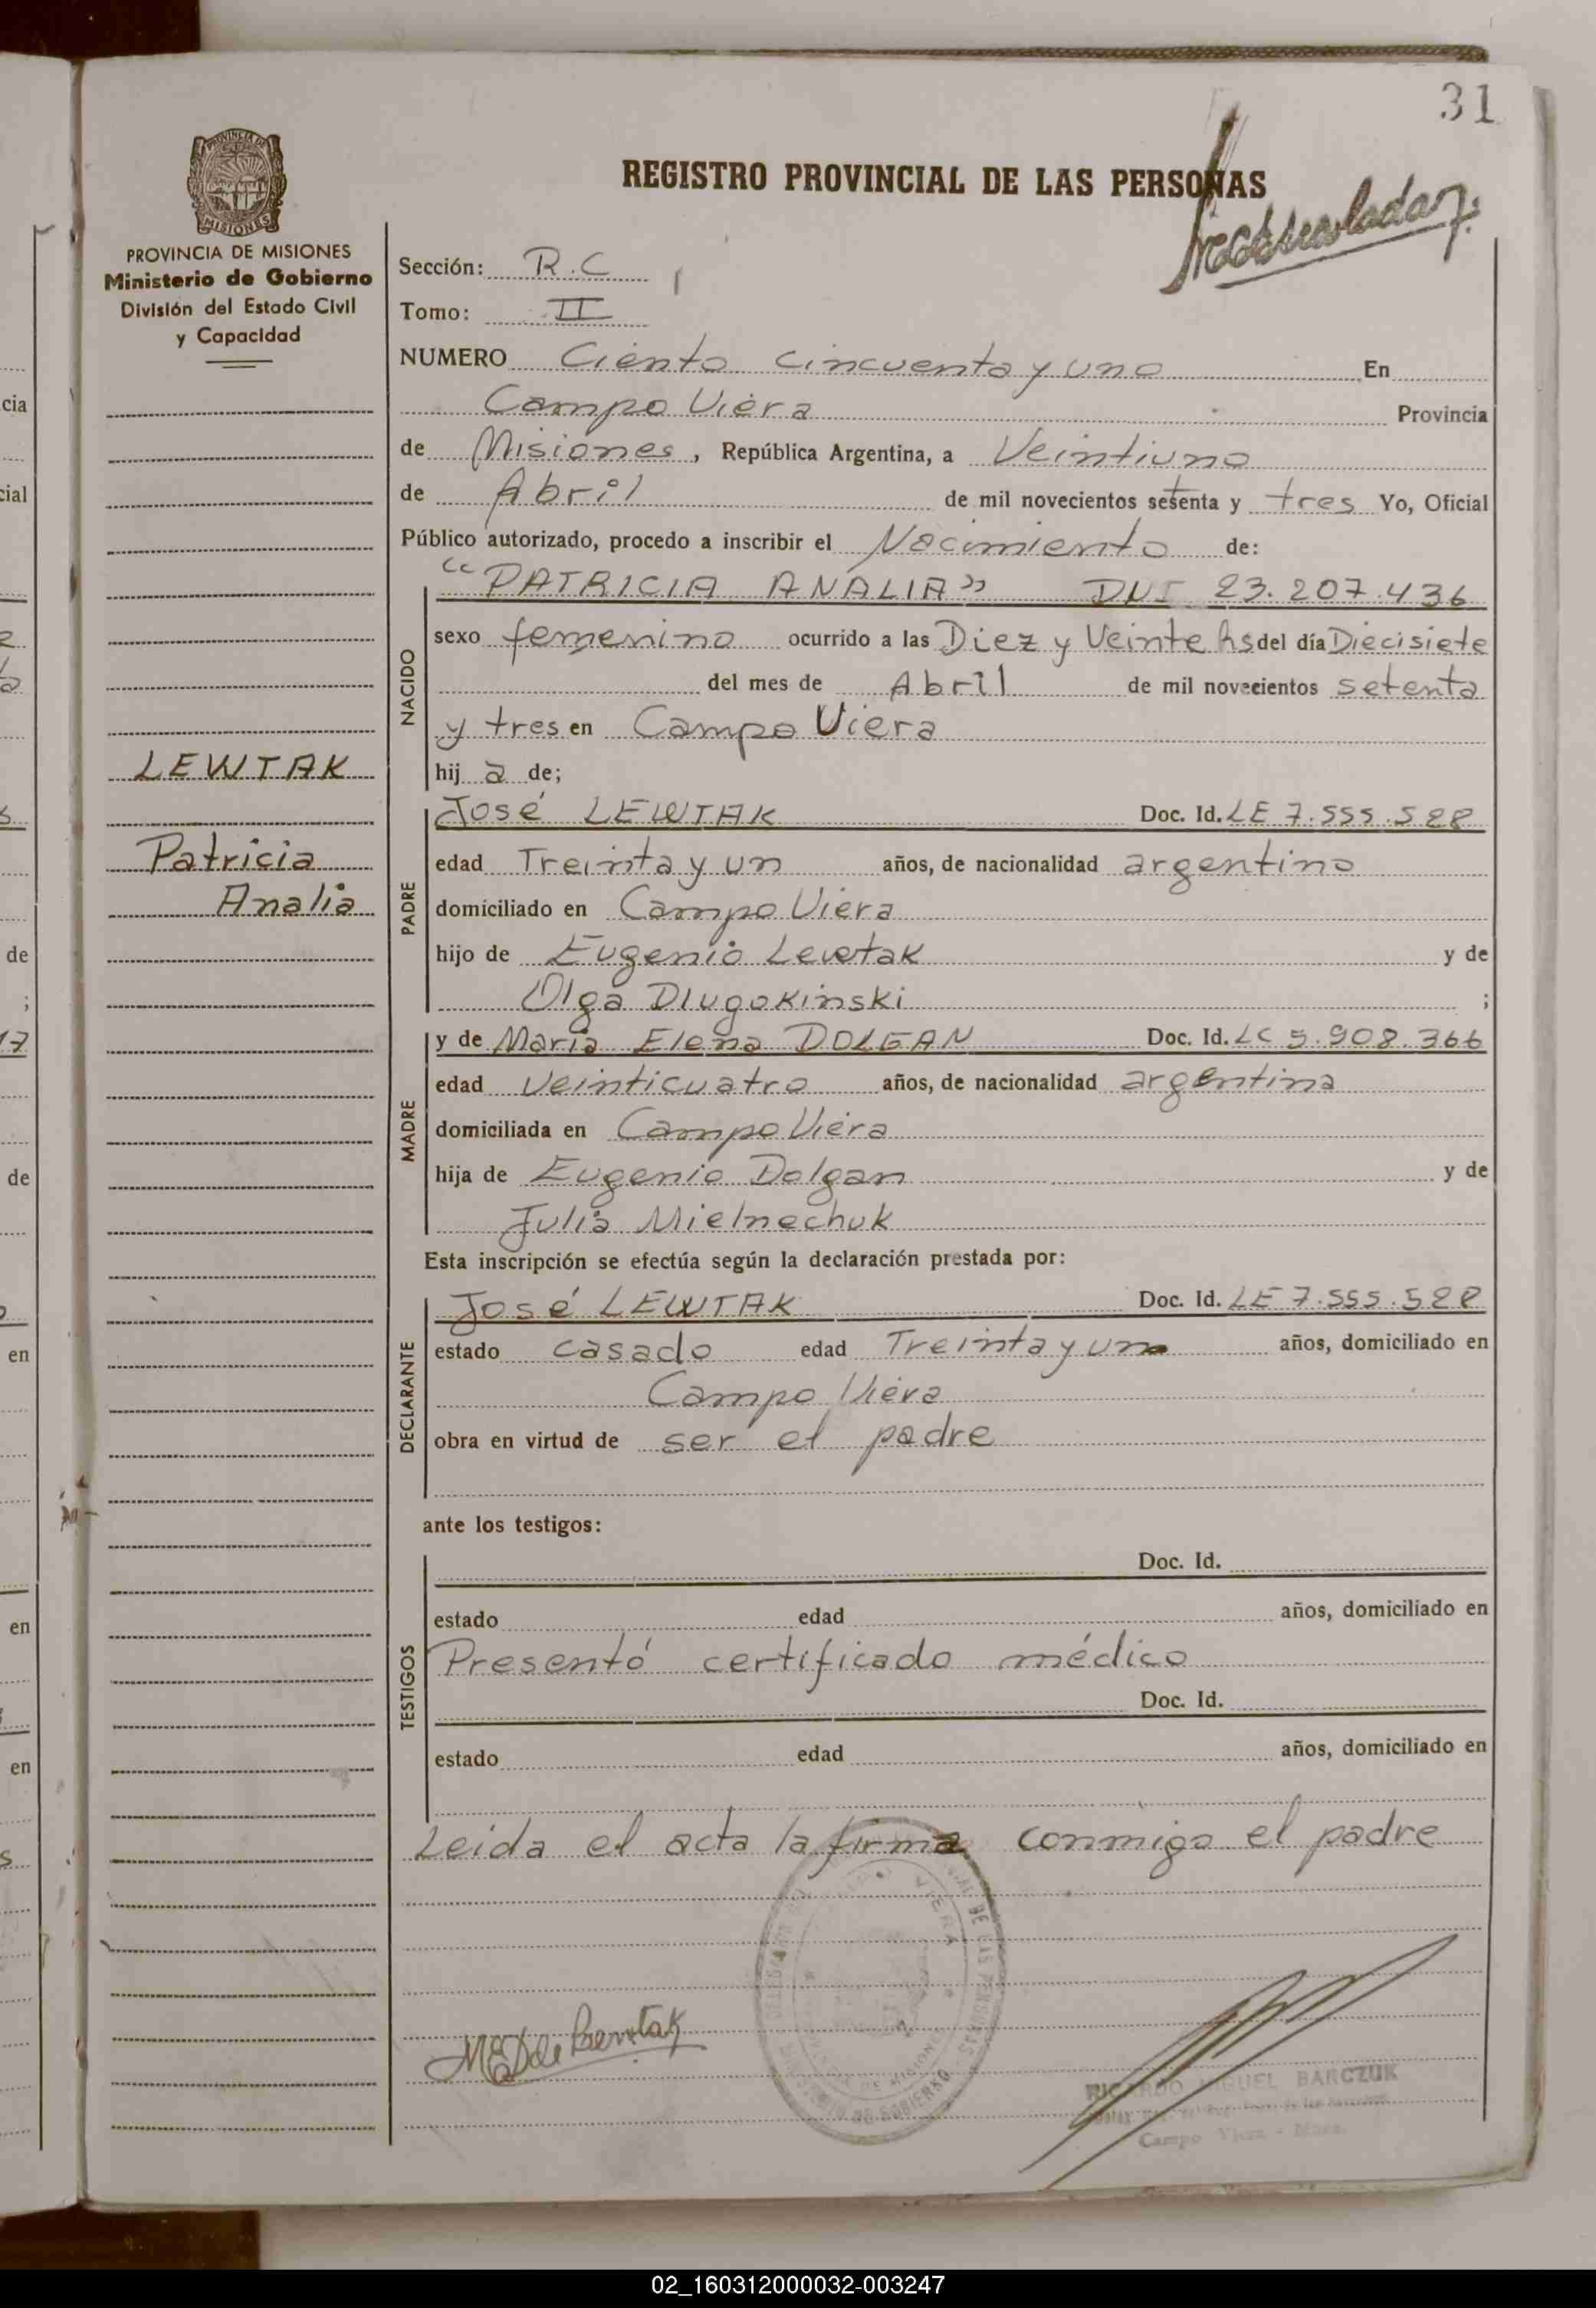 31
REGISTRO PROVINCIAL DE LAS PERSONAS
PROVINCIA DE MISIONES
Ministerio de Gobierno
División del Estado Civil
y Capacidad
Sección: R.C
Tomo: II
NUMERO Ciento cincuenta y uno En
Campo Viera Provincia
de Misiones, República Argentina, a Veintiuno
de Abril de mil novecientos setenta y tres Yo, Oficial
Público autorizado, procedo a inscribir el Nacimiento de:
NACIDO
"PATRICIA ANALIA" DNI 23.207.436
sexo femenino ocurrido a las Diez y Veinte hs del día Diecisiete
del mes de Abril de mil novecientos setenta
y tres en Campo Viera
hij a de;
LEWTAK
Patricia
Analia
PADRE
José LEWTAK Doc. Id. LE 7.555.528
edad Treinta y un años, de nacionalidad argentino
domiciliado en Campo Viera
hijo de Eugenio Lewtak y de
Olga Dlugokinski ;
MADRE
y de Maria Elena DOLGAN Doc. Id. LC 5.908.366
edad Veinticuatro años, de nacionalidad argentina
domiciliada en Campo Viera
hija de Eugenio Dolgan y de
Julia Mielnechuk
Esta inscripción se efectúa según la declaración prestada por:
DECLARANTE
José LEWTAK Doc. Id. LE 7.555.528
estado casado edad Treinta y un años, domiciliado en
Campo Viera
obra en virtud de ser el padre
ante los testigos:
TESTIGOS
Doc. Id.
estado edad años, domiciliado en
Presentó certificado médico
Doc. Id.
estado edad años, domiciliado en
Leida el acta la firma conmigo el padre
RICARDO MIGUEL BARCZUK
Campo Viera - Mnes.
02_160312000032-003247